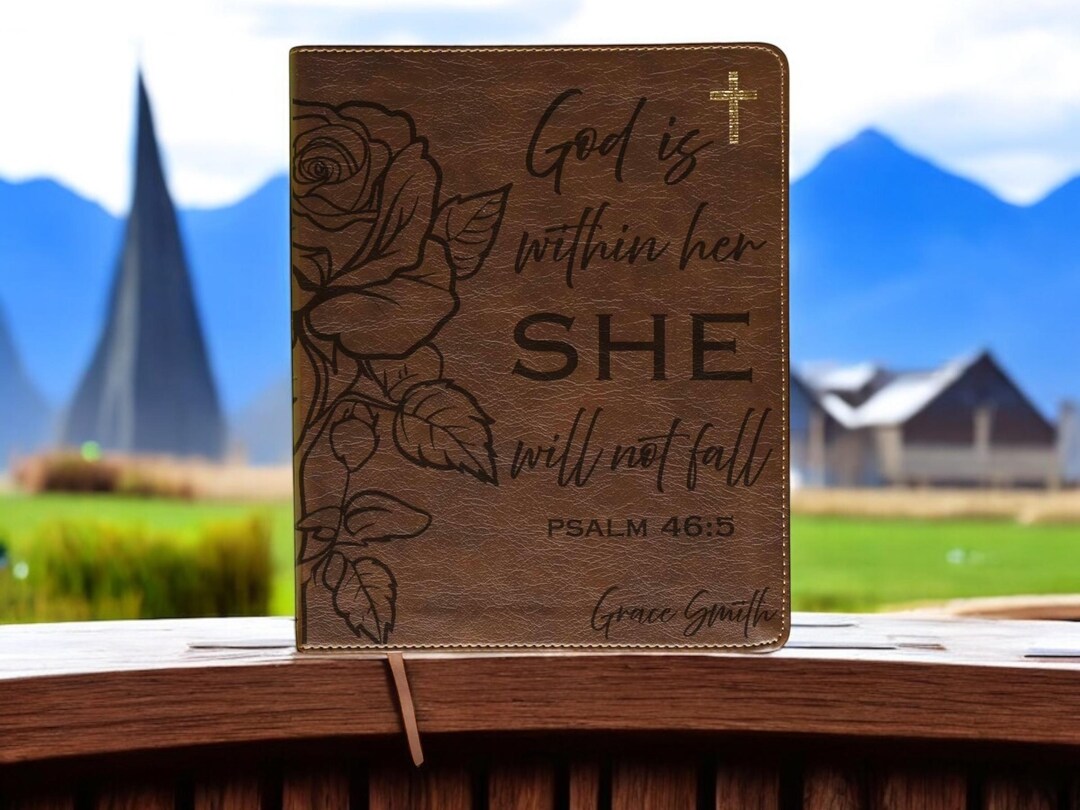 God is
within her
SHE
will not fall
PSALM 46:5
Grace Smith